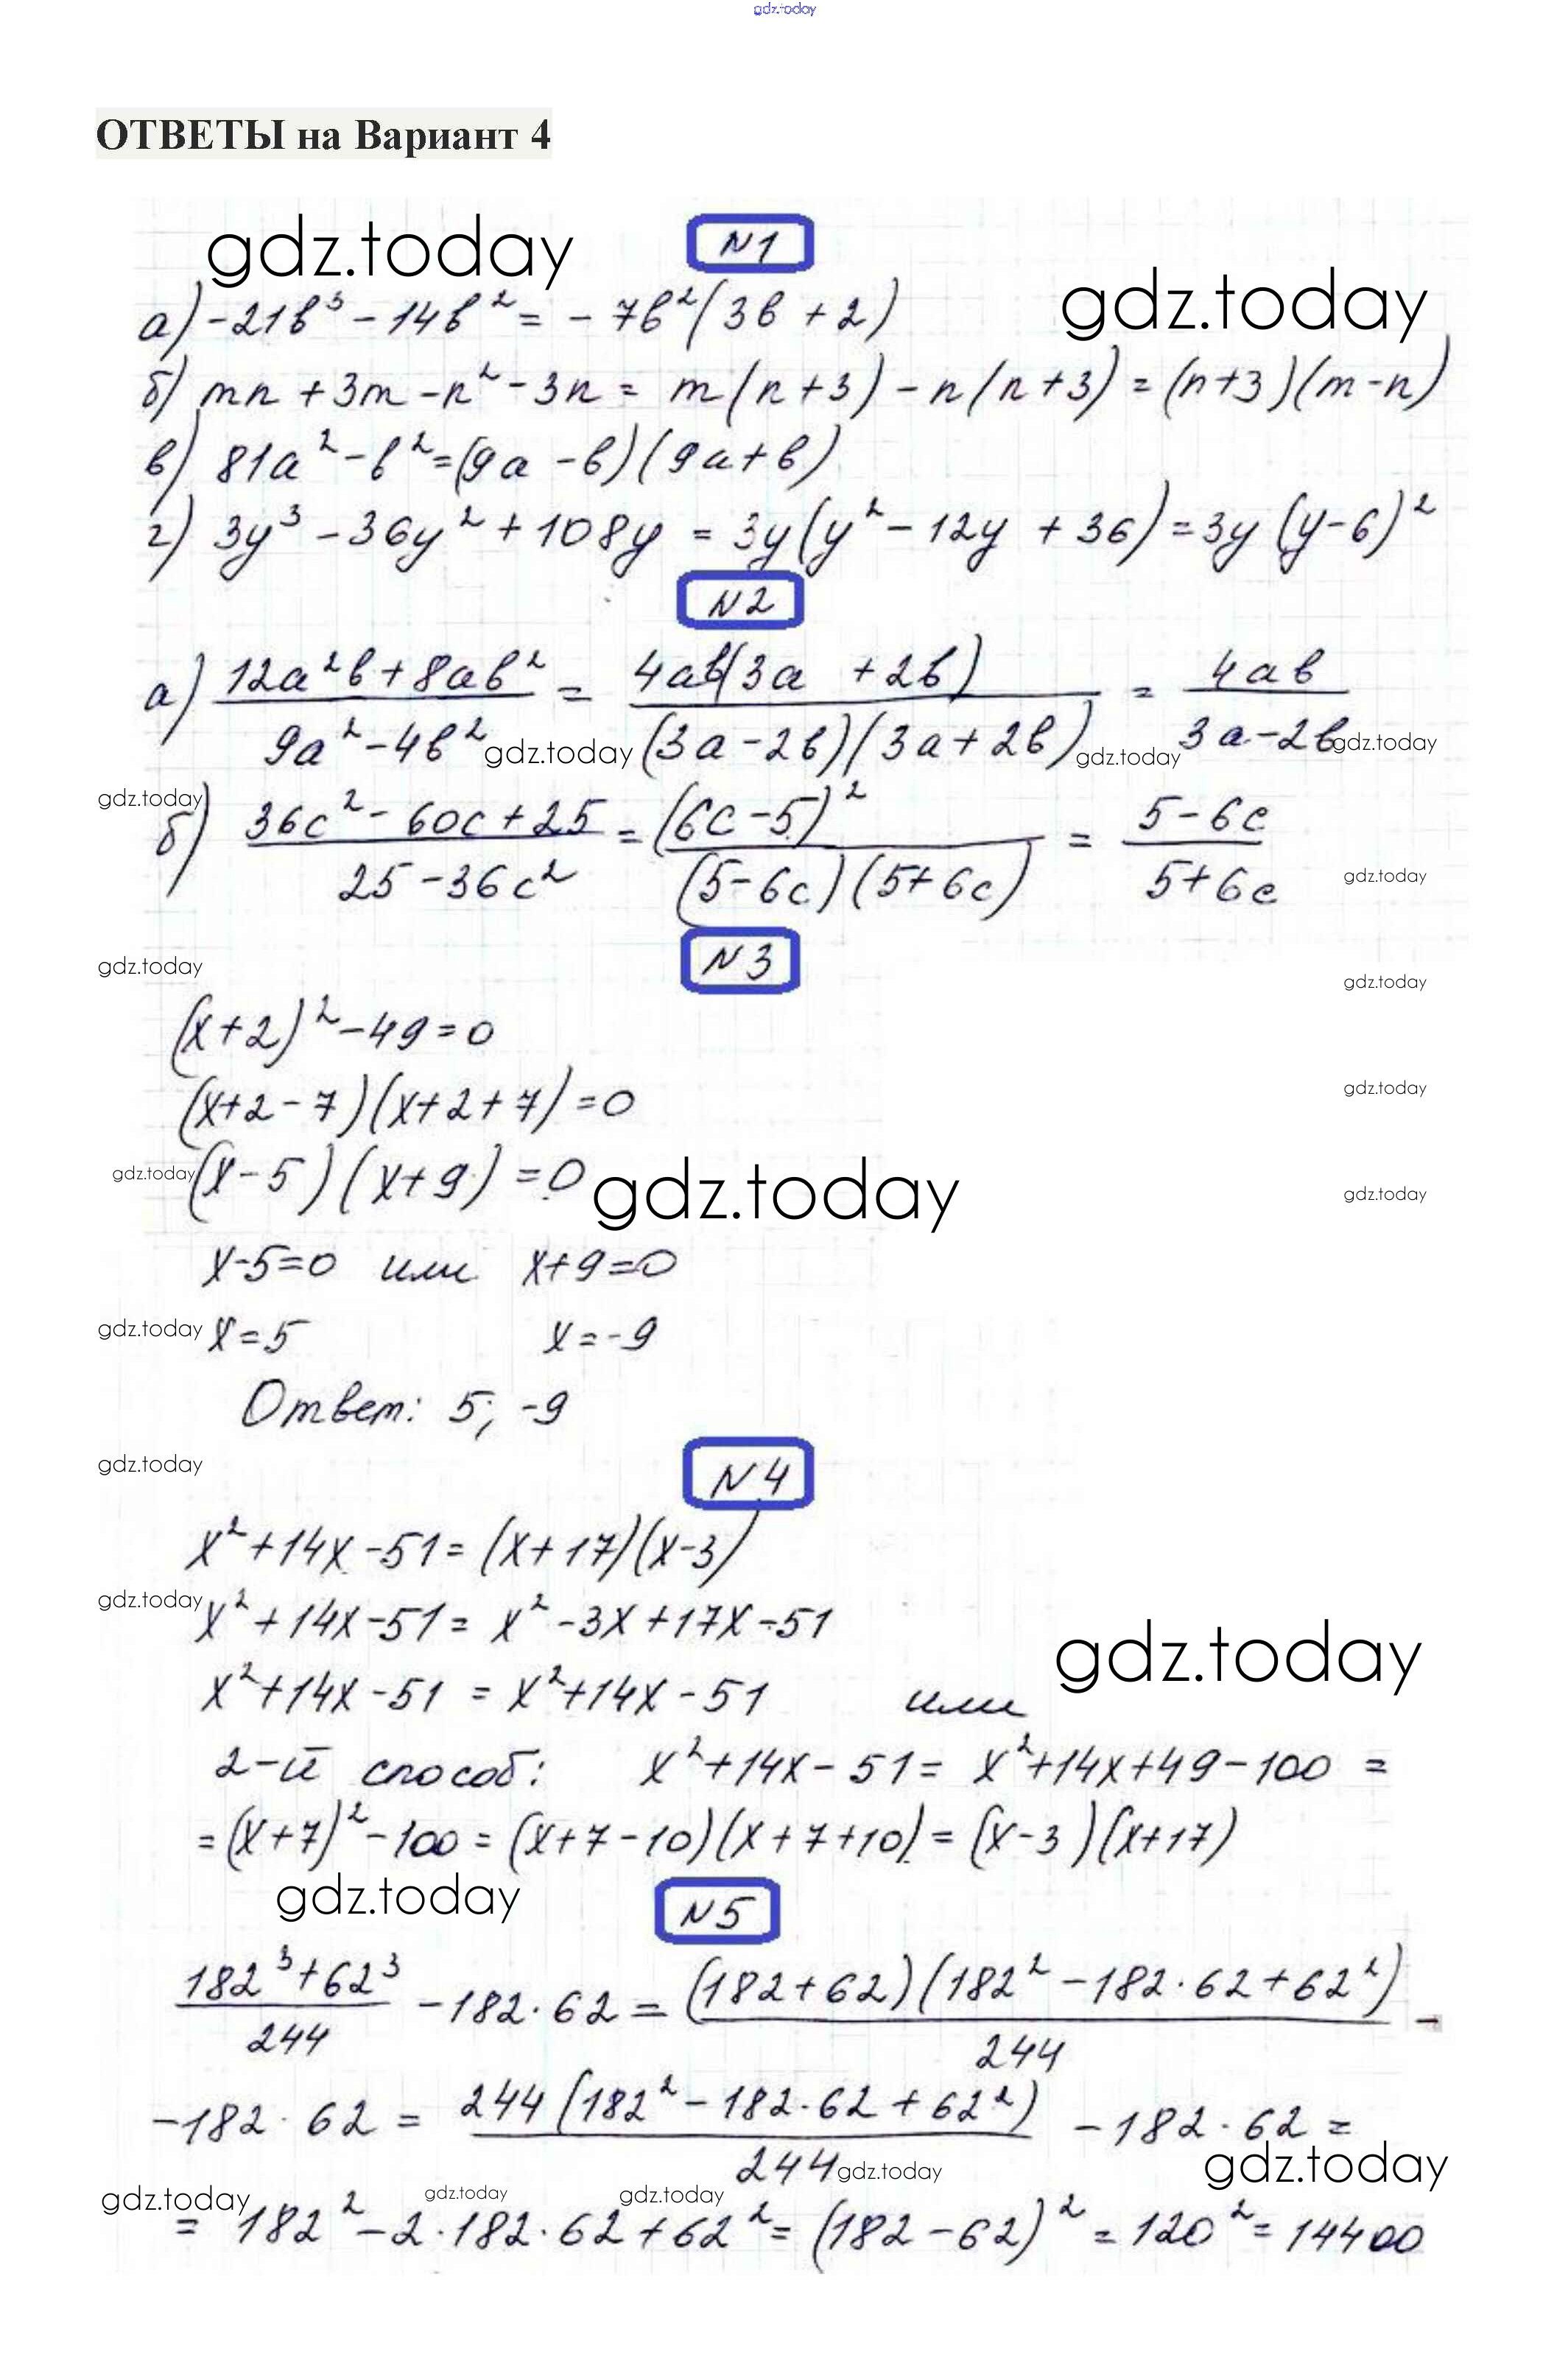 gdz.today
ОТВЕТЫ на Вариант 4
gdz.today
N1
gdz.today
а) -21b³ - 14b² = - 7b²(3b + 2)
б) mn + 3m - n² - 3n = m(n+3) - n(n+3) = (n+3)(m-n)
в) 81a² - b² = (9a - b)(9a + b)
г) 3y³ - 36y² + 108y = 3y(y² - 12y + 36) = 3y(y-6)²
N2
а) (12a²b + 8ab²)/(9a² - 4b²) = (4ab(3a + 2b))/((3a - 2b)(3a + 2b)) = (4ab)/(3a - 2b)
gdz.today gdz.today gdz.today
gdz.today
б) (36c² - 60c + 25)/(25 - 36c²) = (6c - 5)²/((5 - 6c)(5 + 6c)) = (5 - 6c)/(5 + 6c)
gdz.today
N3
gdz.today
gdz.today
(x+2)² - 49 = 0
(x+2-7)(x+2+7) = 0
gdz.today
gdz.today (x-5)(x+9) = 0 gdz.today
gdz.today
x-5=0 или x+9=0
gdz.today x=5 x=-9
Ответ: 5; -9
gdz.today
N4
x² + 14x - 51 = (x+17)(x-3)
gdz.today x² + 14x - 51 = x² - 3x + 17x - 51
gdz.today
x² + 14x - 51 = x² + 14x - 51 или
2-й способ: x² + 14x - 51 = x² + 14x + 49 - 100 =
= (x+7)² - 100 = (x+7-10)(x+7+10) = (x-3)(x+17)
gdz.today
N5
(182³ + 62³)/244 - 182·62 = ((182+62)(182² - 182·62 + 62²))/244 -
- 182·62 = (244(182² - 182·62 + 62²))/244 - 182·62 =
gdz.today gdz.today
gdz.today gdz.today gdz.today
= 182² - 2·182·62 + 62² = (182 - 62)² = 120² = 14400